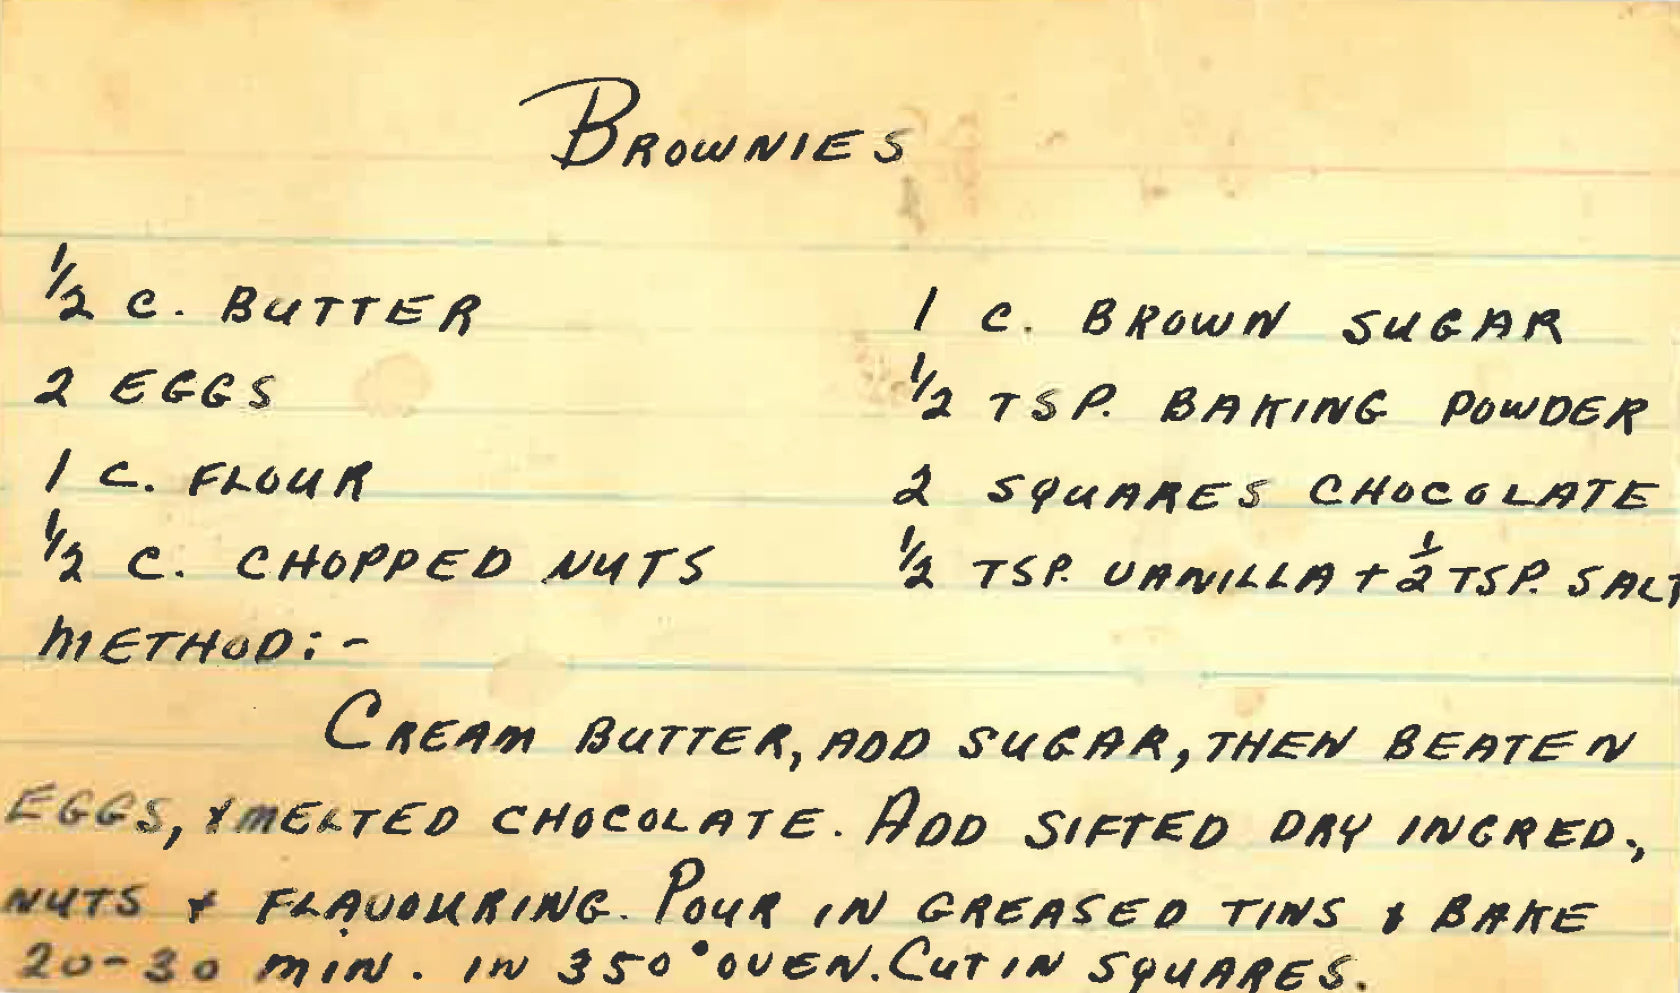 BROWNIES
1/2 C. BUTTER 1 C. BROWN SUGAR
2 EGGS 1/2 TSP. BAKING POWDER
1 C. FLOUR 2 SQUARES CHOCOLATE
1/2 C. CHOPPED NUTS 1/2 TSP. VANILLA + 1/2 TSP. SALT
METHOD:-
CREAM BUTTER, ADD SUGAR, THEN BEATEN
EGGS, & MELTED CHOCOLATE. ADD SIFTED DRY INGRED.,
NUTS & FLAVOURING. POUR IN GREASED TINS & BAKE
20-30 MIN. IN 350° OVEN. CUT IN SQUARES.